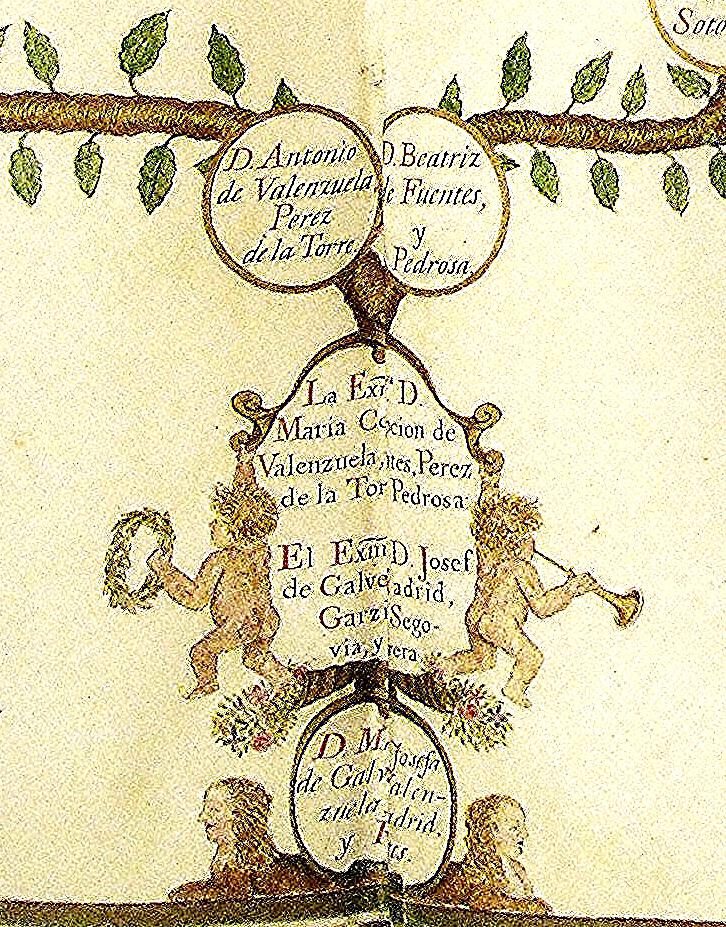 Soto
D. Antonio
de Valenzuela
Perez
de la Torre.
D. Beatriz
de Fuentes,
y
Pedrosa.
La Exma. D.
María Co cion de
Valenzuela, ntes, Perez
de la Tor Pedrosa
El Exmo D. Josef
de Galve adrid,
Garzi Sego-
via, y rera
D. M Josefa
de Galv Valen-
zuela adrid,
y T us.